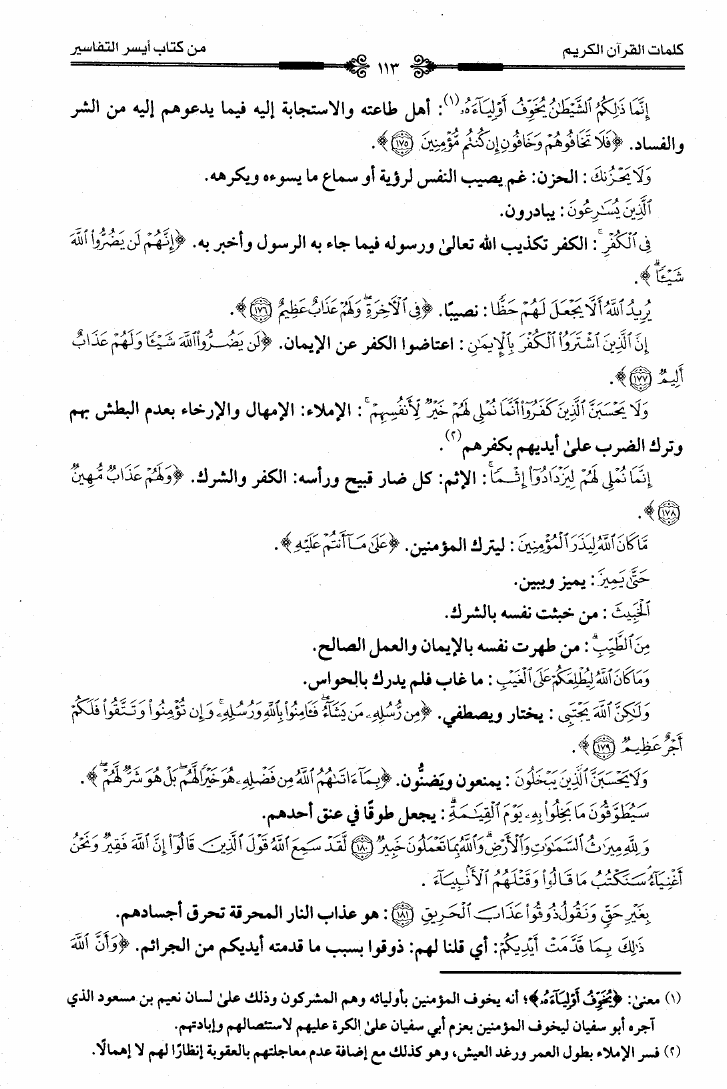 كلمات القرآن الكريم
١١٣
من كتاب أيسر التفاسير
إِنَّمَا ذَلِكُمُ الشَّيْطَنُ يُخَوِّفُ أَوْلِيَاءَهُ (١): أهل طاعته والاستجابة إليه فيما يدعوهم إليه من الشر
والفساد. ﴿فَلَا تَخَافُوهُمْ وَخَافُونِ إِن كُنتُم مُّؤْمِنِينَ ١٧٥﴾.
وَلَا يَحْزُنكَ: الحزن: غم يصيب النفس لرؤية أو سماع ما يسوءه ويكرهه.
الَّذِينَ يُسَـٰرِعُونَ: يبادرون.
فِي الْكُفْرِ: الكفر تكذيب الله تعالىٰ ورسوله فيما جاء به الرسول وأخبر به. ﴿إِنَّهُمْ لَن يَضُرُّوا اللَّهَ
شَيْئًا﴾.
يُرِيدُ اللَّهُ أَلَّا يَجْعَلَ لَهُمْ حَظًّا: نصيبًا. ﴿فِي الْآخِرَةِ وَلَهُمْ عَذَابٌ عَظِيمٌ ١٧٦﴾.
إِنَّ الَّذِينَ اشْتَرَوُا الْكُفْرَ بِالْإِيمَـٰنِ: اعتاضوا الكفر عن الإيمان. ﴿لَن يَضُرُّوا اللَّهَ شَيْئًا وَلَهُمْ عَذَابٌ
أَلِيمٌ ١٧٧﴾.
وَلَا يَحْسَبَنَّ الَّذِينَ كَفَرُوا أَنَّمَا نُمْلِي لَهُمْ خَيْرٌ لِّأَنفُسِهِمْ: الإملاء: الإمهال والإرخاء بعدم البطش بهم
وترك الضرب علىٰ أيديهم بكفرهم (٢).
إِنَّمَا نُمْلِي لَهُمْ لِيَزْدَادُوا إِثْمًا: الإثم: كل ضار قبيح ورأسه: الكفر والشرك. ﴿وَلَهُمْ عَذَابٌ مُّهِينٌ
١٧٨﴾.
مَّا كَانَ اللَّهُ لِيَذَرَ الْمُؤْمِنِينَ: ليترك المؤمنين. ﴿عَلَىٰ مَا أَنتُمْ عَلَيْهِ﴾.
حَتَّىٰ يَمِيزَ: يميز ويبين.
الْخَبِيثَ: من خبثت نفسه بالشرك.
مِنَ الطَّيِّبِ: من طهرت نفسه بالإيمان والعمل الصالح.
وَمَا كَانَ اللَّهُ لِيُطْلِعَكُمْ عَلَى الْغَيْبِ: ما غاب فلم يدرك بالحواس.
وَلَـٰكِنَّ اللَّهَ يَجْتَبِي: يختار ويصطفي. ﴿مِن رُّسُلِهِ مَن يَشَاءُ فَآمِنُوا بِاللَّهِ وَرُسُلِهِ وَإِن تُؤْمِنُوا وَتَتَّقُوا فَلَكُمْ
أَجْرٌ عَظِيمٌ ١٧٩﴾.
وَلَا يَحْسَبَنَّ الَّذِينَ يَبْخَلُونَ: يمنعون ويَضنُّون. ﴿بِمَا آتَاهُمُ اللَّهُ مِن فَضْلِهِ هُوَ خَيْرًا لَّهُم بَلْ هُوَ شَرٌّ لَّهُمْ﴾.
سَيُطَوَّقُونَ مَا بَخِلُوا بِهِ يَوْمَ الْقِيَـٰمَةِ: يجعل طوقًا في عنق أحدهم.
وَلِلَّهِ مِيرَاثُ السَّمَـٰوَاتِ وَالْأَرْضِ وَاللَّهُ بِمَا تَعْمَلُونَ خَبِيرٌ ١٨٠ لَّقَدْ سَمِعَ اللَّهُ قَوْلَ الَّذِينَ قَالُوا إِنَّ اللَّهَ فَقِيرٌ وَنَحْنُ
أَغْنِيَاءُ سَنَكْتُبُ مَا قَالُوا وَقَتْلَهُمُ الْأَنبِيَاءَ.
بِغَيْرِ حَقٍّ وَنَقُولُ ذُوقُوا عَذَابَ الْحَرِيقِ ١٨١: هو عذاب النار المحرقة تحرق أجسادهم.
ذَٰلِكَ بِمَا قَدَّمَتْ أَيْدِيكُمْ: أي قلنا لهم: ذوقوا بسبب ما قدمته أيديكم من الجرائم. ﴿وَأَنَّ اللَّهَ
(١) معنىٰ: ﴿يُخَوِّفُ أَوْلِيَاءَهُ﴾؛ أنه يخوف المؤمنين بأوليائه وهم المشركون وذلك علىٰ لسان نعيم بن مسعود الذي
آجره أبو سفيان ليخوف المؤمنين بعزم أبي سفيان علىٰ الكرة عليهم لاستئصالهم وإبادتهم.
(٢) فسر الإملاء بطول العمر ورغد العيش، وهو كذلك مع إضافة عدم معاجلتهم بالعقوبة إنظارًا لهم لا إهمالًا.